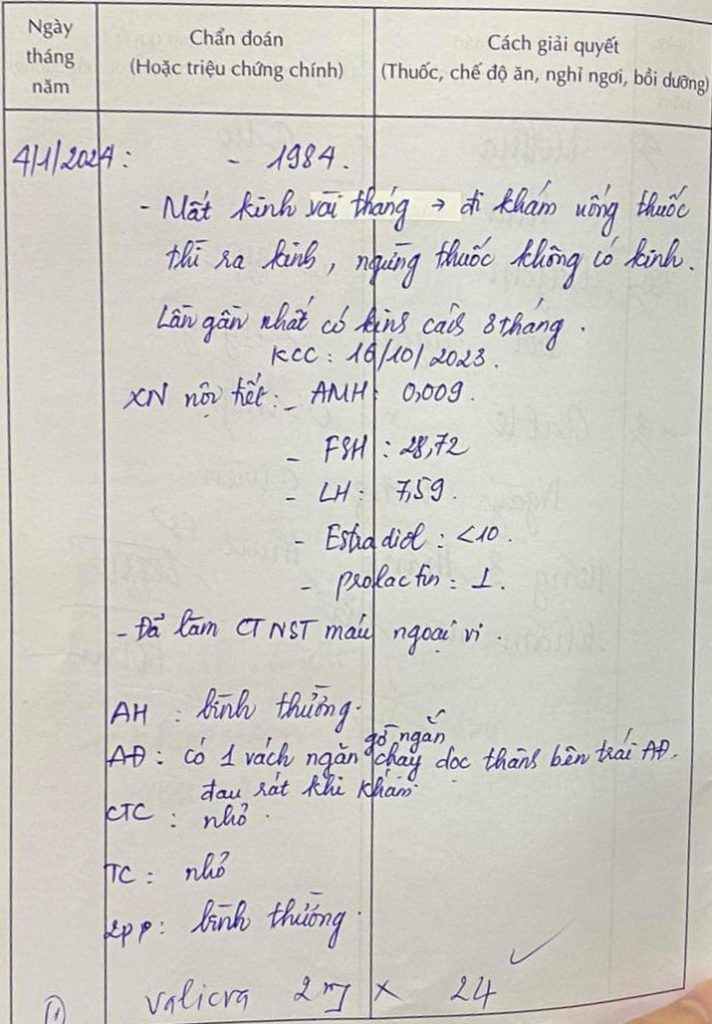 Ngày tháng năm
Chẩn đoán
(Hoặc triệu chứng chính)
Cách giải quyết
(Thuốc, chế độ ăn, nghỉ ngơi, bồi dưỡng)
4/1/2024: - 1984.
- Mất kinh vài tháng → đi khám uống thuốc
thì ra kinh, ngừng thuốc không có kinh.
Lần gần nhất có kinh cách 8 tháng.
KCC: 16/10/2023.
XN nội tiết: - AMH: 0,009.
- FSH: 28,72
- LH: 7,59.
- Estradiol: <10.
- prolactin: 1.
- Đã làm CTNST máu ngoại vi.
AH: bình thường.
gờ ngắn
AĐ: có 1 vách ngăn chạy dọc thành bên trái AĐ.
đau rát khi khám.
CTC: nhỏ.
TC: nhỏ
2pp: bình thường.
Valicra 2mg x 24
(1)